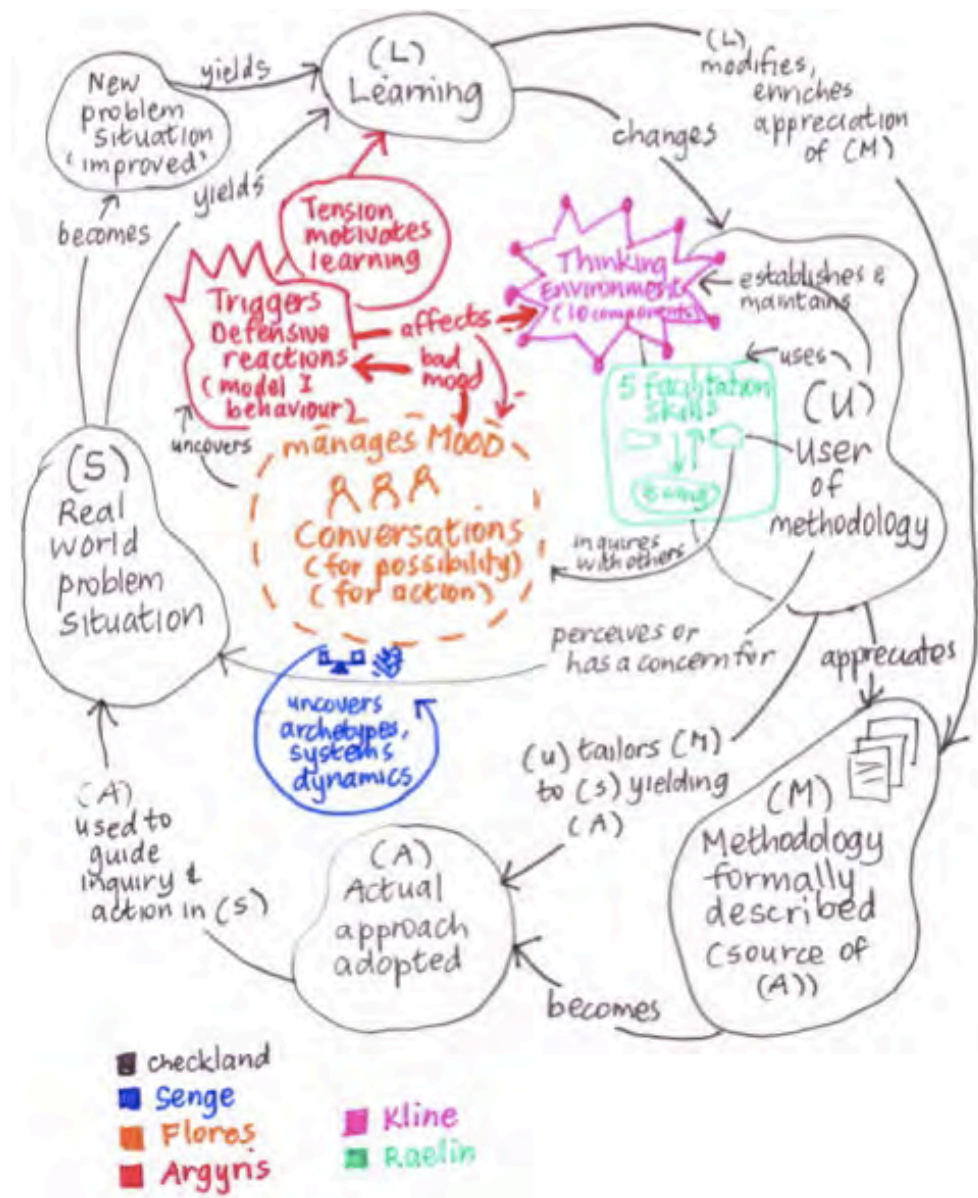 New
problem
situation
'improved'
yields
(L)
Learning
(L)
modifies,
enriches
appreciation
of (M)
changes
yields
becomes
Tension
motivates
learning
Triggers
Defensive
reactions
(model I
behaviour)
affects
bad
mood
Thinking
Environment
(10 components)
establishes &
maintains
uses
5 facilitation
skills
(U)
user
of
methodology
uncovers
manages MOOD
Conversations
(for possibility)
(for action)
inquires
with others
(S)
Real
world
problem
situation
perceives or
has a concern for
appreciates
uncovers
archetypes,
systems
dynamics
(U) tailors (M)
to (S) yielding
(A)
(A)
used to
guide
inquiry &
action in (S)
(A)
Actual
approach
adopted
(M)
Methodology
formally
described
(source of
(A))
becomes
checkland
Senge
Flores
Argyris
Kline
Raelin